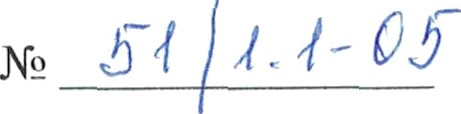 № 51/1.1-05